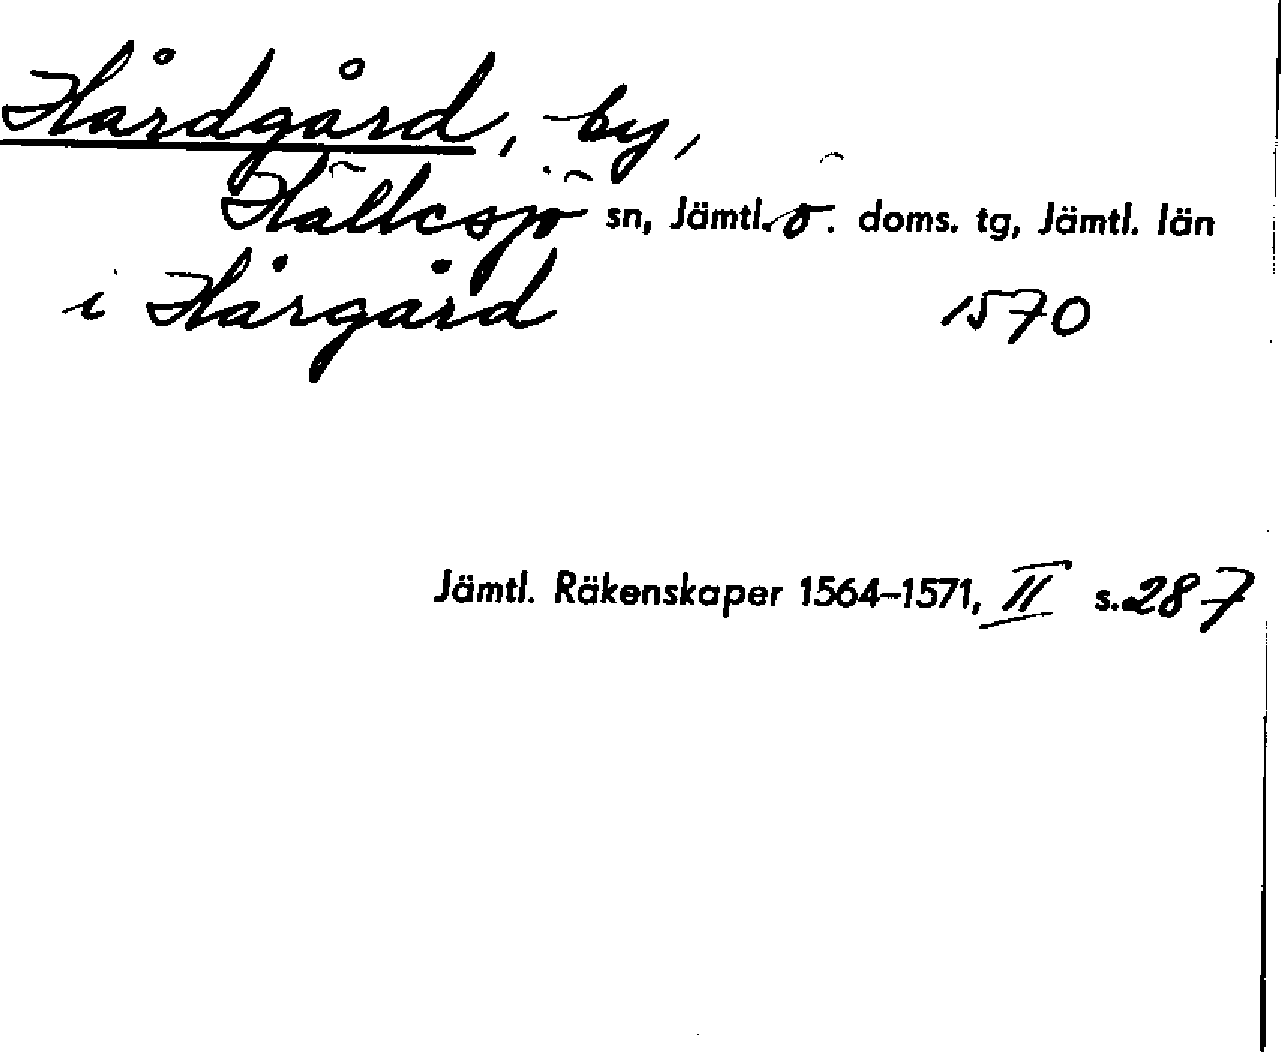 Hårdgård, by,
Hällesjö sn, Jämtl. ö. doms. tg, Jämtl. län
i Hårgård 1570
Jämtl. Räkenskaper 1564–1571, II s. 287